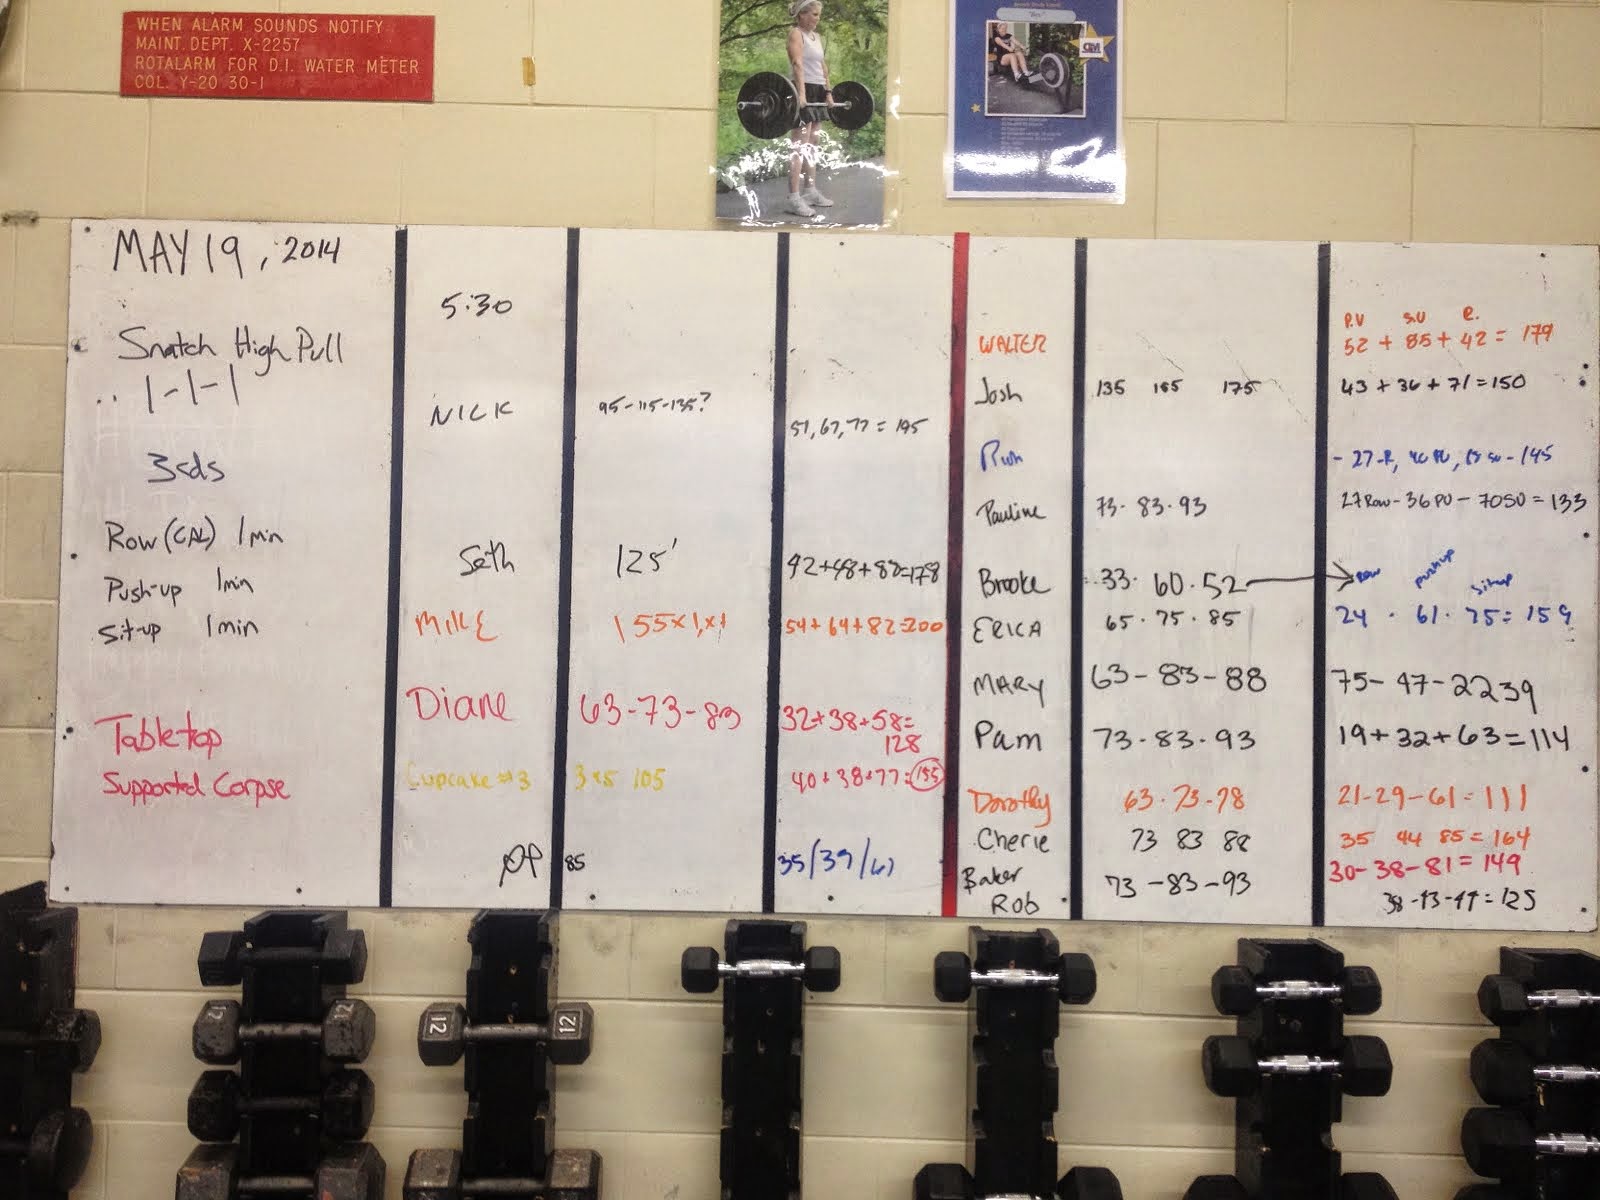 WHEN ALARM SOUNDS NOTIFY
MAINT. DEPT. X-2257
ROTALARM FOR D.I. WATER METER
COL. Y-20 30-1
MAY 19, 2014
Snatch High Pull
1-1-1
3rds
Row (CAL) 1 min
Push-up 1 min
Sit-up 1 min
Tabletop
Supported Corpse
5:30
NICK 95-115-135? 51, 67, 77 = 195
Seth 125' 42+48+88=178
MIKE 155x1,x1 54+64+82=200
Diane 63-73-83 32+38+58=
128
Cupcake #3 3x5 105 40+38+77=155
85 35/39/61
P.U S.U R.
WALTER 52 + 85 + 42 = 179
Josh 135 155 175 43 + 36 + 71 = 150
- 27-R, 40 PU, - 145
Pauline 73. 83. 93 27 Row - 36 PU - 70 SU = 133
Row pushup situp
Brooke 33. 60. 52
ERICA 65. 75. 85 24 . 61. 75 = 159
MARY 63 - 83 - 88 75 - 47 - 2239
Pam 73. 83. 93 19+32+63=114
Dorothy 63. 73. 78 21-29-61=111
Cherie 73 83 88 35 44 85 = 164
Baker 73 - 83 - 93 30-38-81=149
Rob 38-43-44=125
12
12
12
12